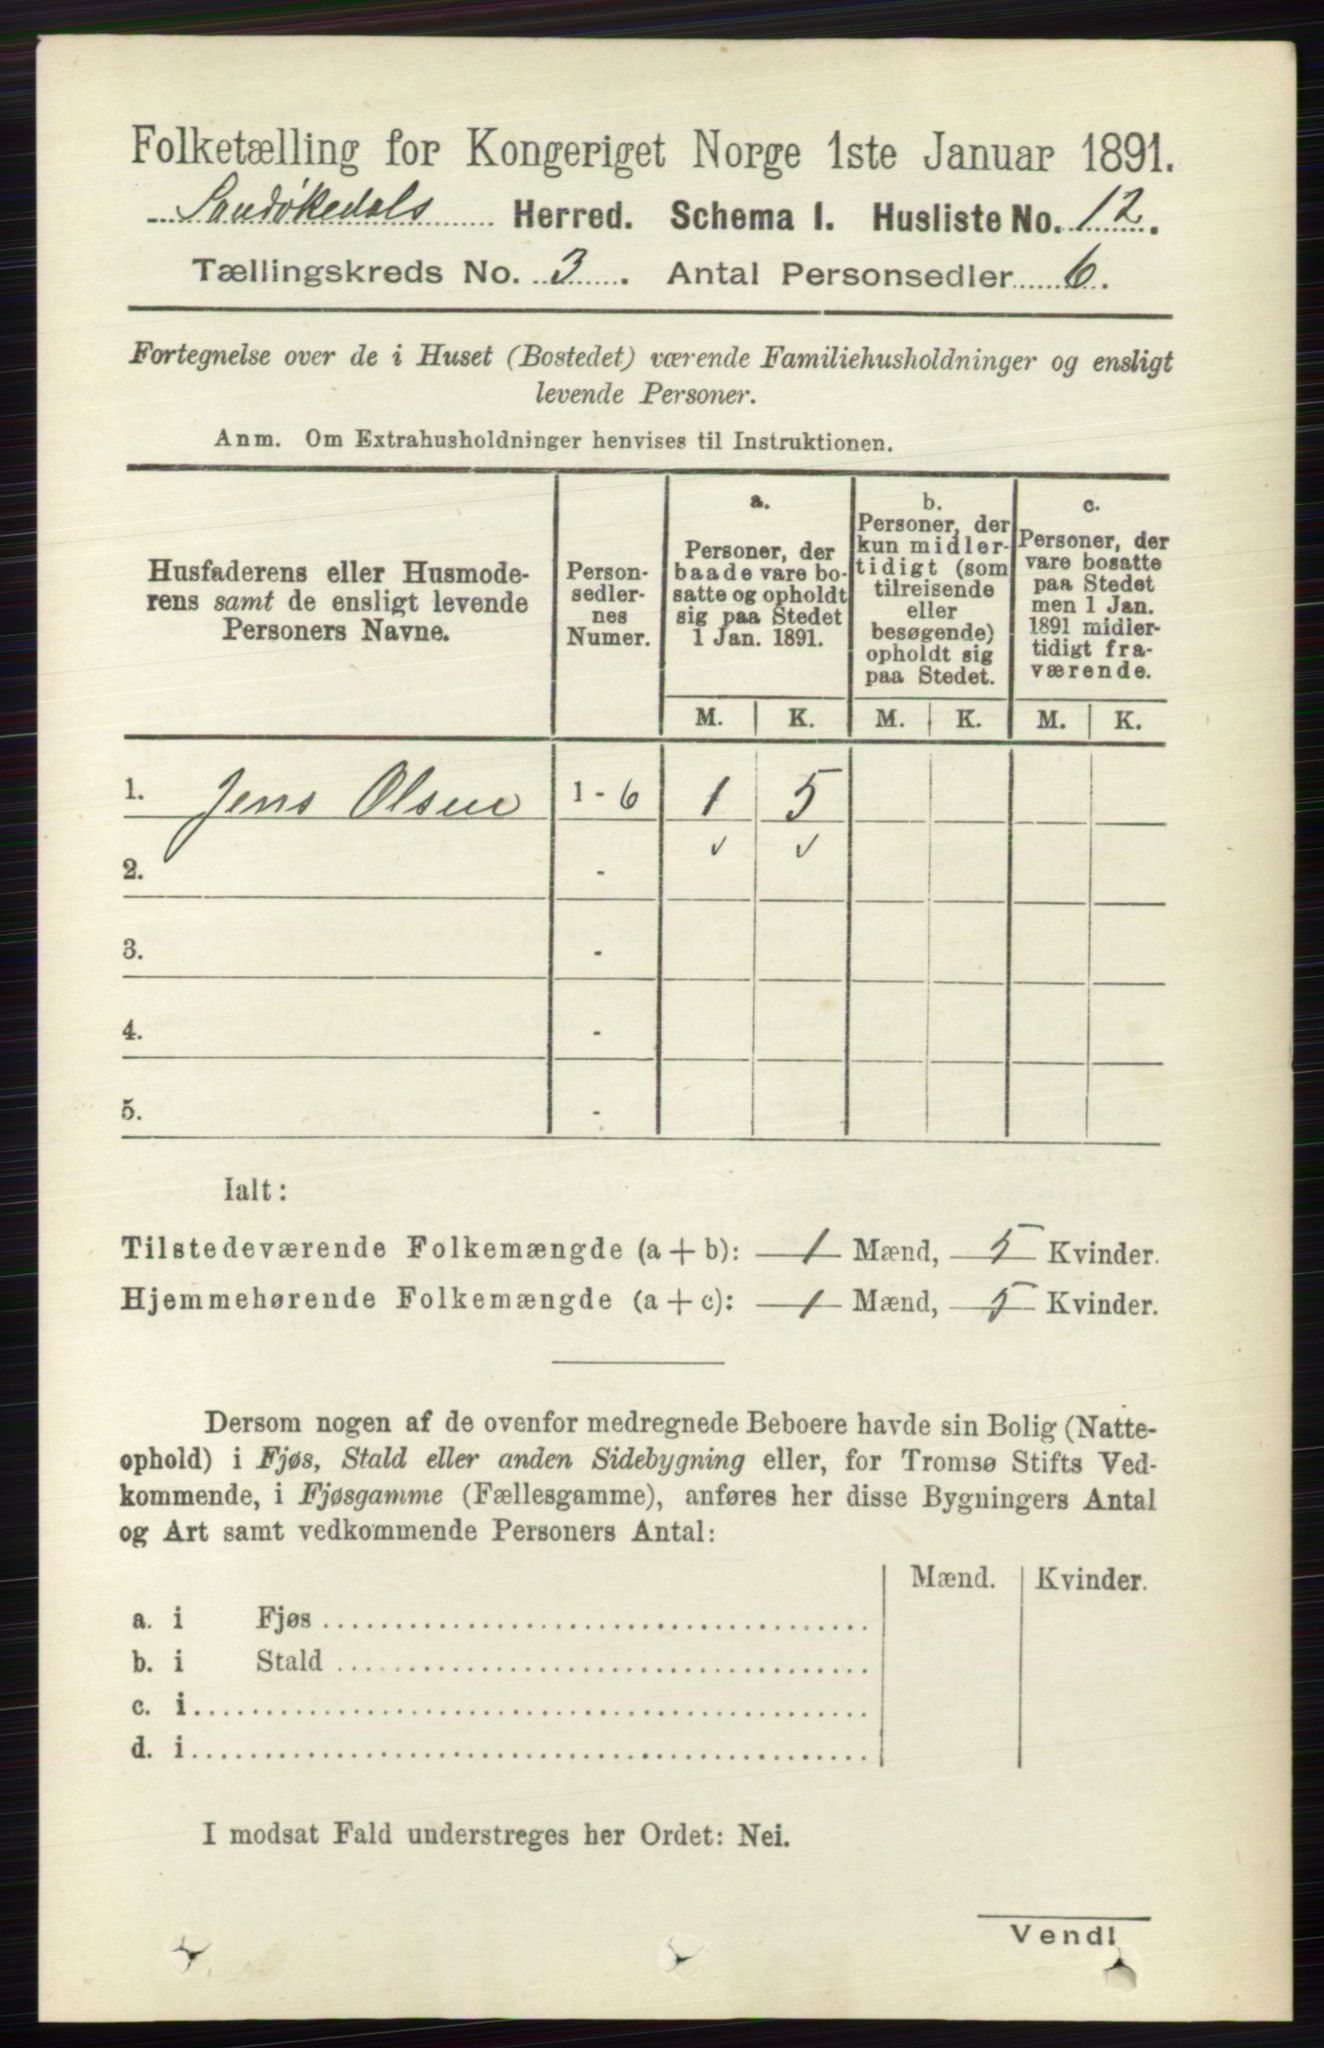 Folketælling for Kongeriget Norge 1ste Januar 1891.
Sandøkedals Herred. Schema I. Husliste No. 12.
Tællingskreds No. 3. Antal Personsedler 6.
Fortegnelse over de i Huset (Bostedet) værende Familiehusholdninger og ensligt
levende Personer.
Anm. Om Extrahusholdninger henvises til Instruktionen.
Husfaderens eller Husmode-
rens samt de ensligt levende
Personers Navne.
Person-
sedler-
nes
Numer.
a.
Personer, der
baade vare bo-
satte og opholdt
sig paa Stedet
1 Jan. 1891.
b.
Personer, der
kun midler-
tidigt (som
tilreisende
eller
besøgende)
opholdt sig
paa Stedet.
c.
Personer, der
vare bosatte
paa Stedet
men 1 Jan.
1891 midler-
tidigt fra-
værende.
M. K. M. K. M. K.
1. Jens Olsen 1 - 6 1 5
✓ ✓
2. -
3. -
4. -
5. -
Ialt:
Tilstedeværende Folkemængde (a + b): 1 Mænd, 5 Kvinder.
Hjemmehørende Folkemængde (a + c): 1 Mænd, 5 Kvinder.
Dersom nogen af de ovenfor medregnede Beboere havde sin Bolig (Natte-
ophold) i Fjøs, Stald eller anden Sidebygning eller, for Tromsø Stifts Ved-
kommende, i Fjøsgamme (Fællesgamme), anføres her disse Bygningers Antal
og Art samt vedkommende Personers Antal:
Mænd. Kvinder.
a. i Fjøs
b. i Stald
c. i
d. i
I modsat Fald understreges her Ordet: Nei.
Vend!